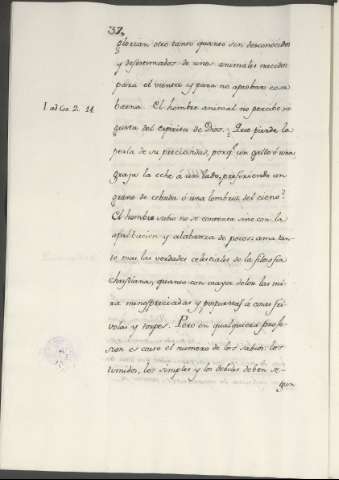 37.
plozcan otro tanto quanto son desconocidos
y desestimados de unos animales nacidos
para el vientre y para no aprobar cosa
I. ad Cor. 2. 14. buena. El hombre animal no percibe ni
gusta del espiritu de Dios. ¿Que pierde la
perla de su preciosidad, porq.e un gallo ó una
graja la eche á un lado, prefiriendo un
grano de cebada ó una lombriz del cieno?
El hombre sabio no se contenta sino con la
aprobacion y alabanza de pocos: ama tan-
to mas las verdades celestiales de la filosofia
christiana, quanto con mayor dolor las mi-
ra menospreciadas y pospuestas á cosas fri-
volas y torpes. Pero en qualquiera profe-
sion es corto el numero de los sabios: los
timidos, los simples y los debiles deben se-
guir